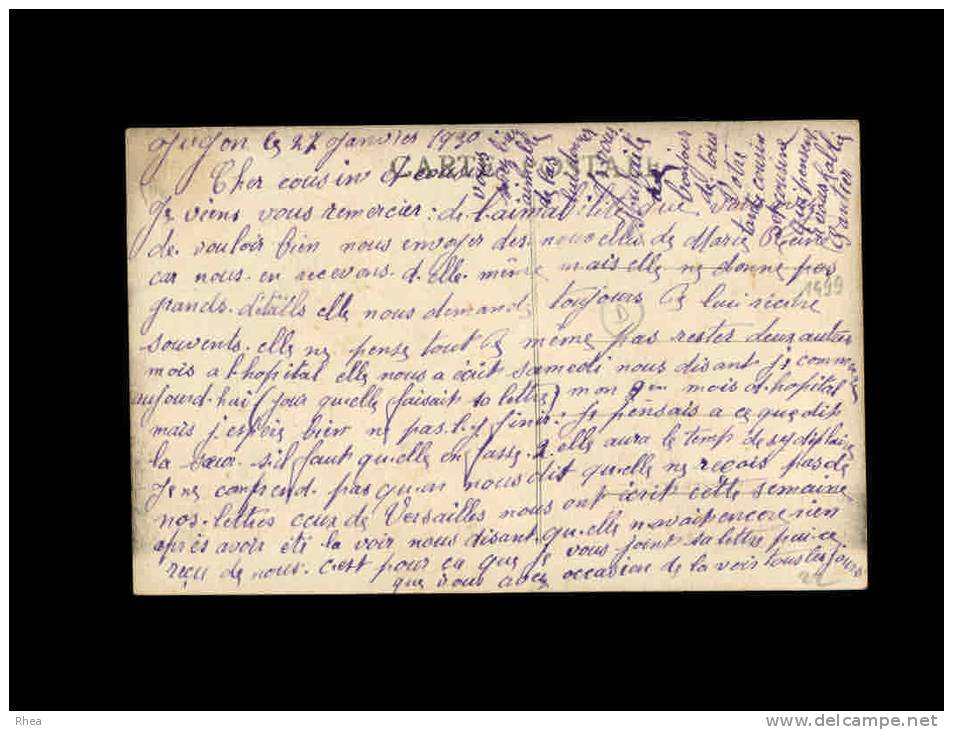 Jugon le 27 Janvier 1930
CARTE POSTALE
Cher cousin et cousine
Je viens vous remercier de l'aimabilité que vous
de vouloir bien nous envoyer des nouvelles de Marie Reine
car nous en recevons d'elle même mais elle ne donne pas
grands détails elle nous demande toujours de lui récrire
souvents. elle ne pense tout de même pas rester deux autres
mois a l'hopital elle nous a écrit samedi nous disant je commence
aujourd-hui (jour qu'elle faisait sa lettre) mon mois d-hopital
mais j'espère bien ne pas l-y finir. Je pensais a ce que dit
la sœur s'il faut qu'elle en fasse 2. elle aura le temp de
Je ne comprend pas qu'on nous dit qu'elle ne reçois pas de
nos lettres ceux de Versailles nous ont écrit cette semaine
après avoir été la voir nous disant qu'elle n'avait encore rien
reçu de nous. c'est pour ca que je vous joint sa lettre puis-ce
que vous avez occasion de la voir tous les jours
vous
aimable
de
bonjour
de tous
Votre
tante cousin
et cousine
qui pensent
a vous
Gautier
1499
D
22
Rhea
www.delcampe.net